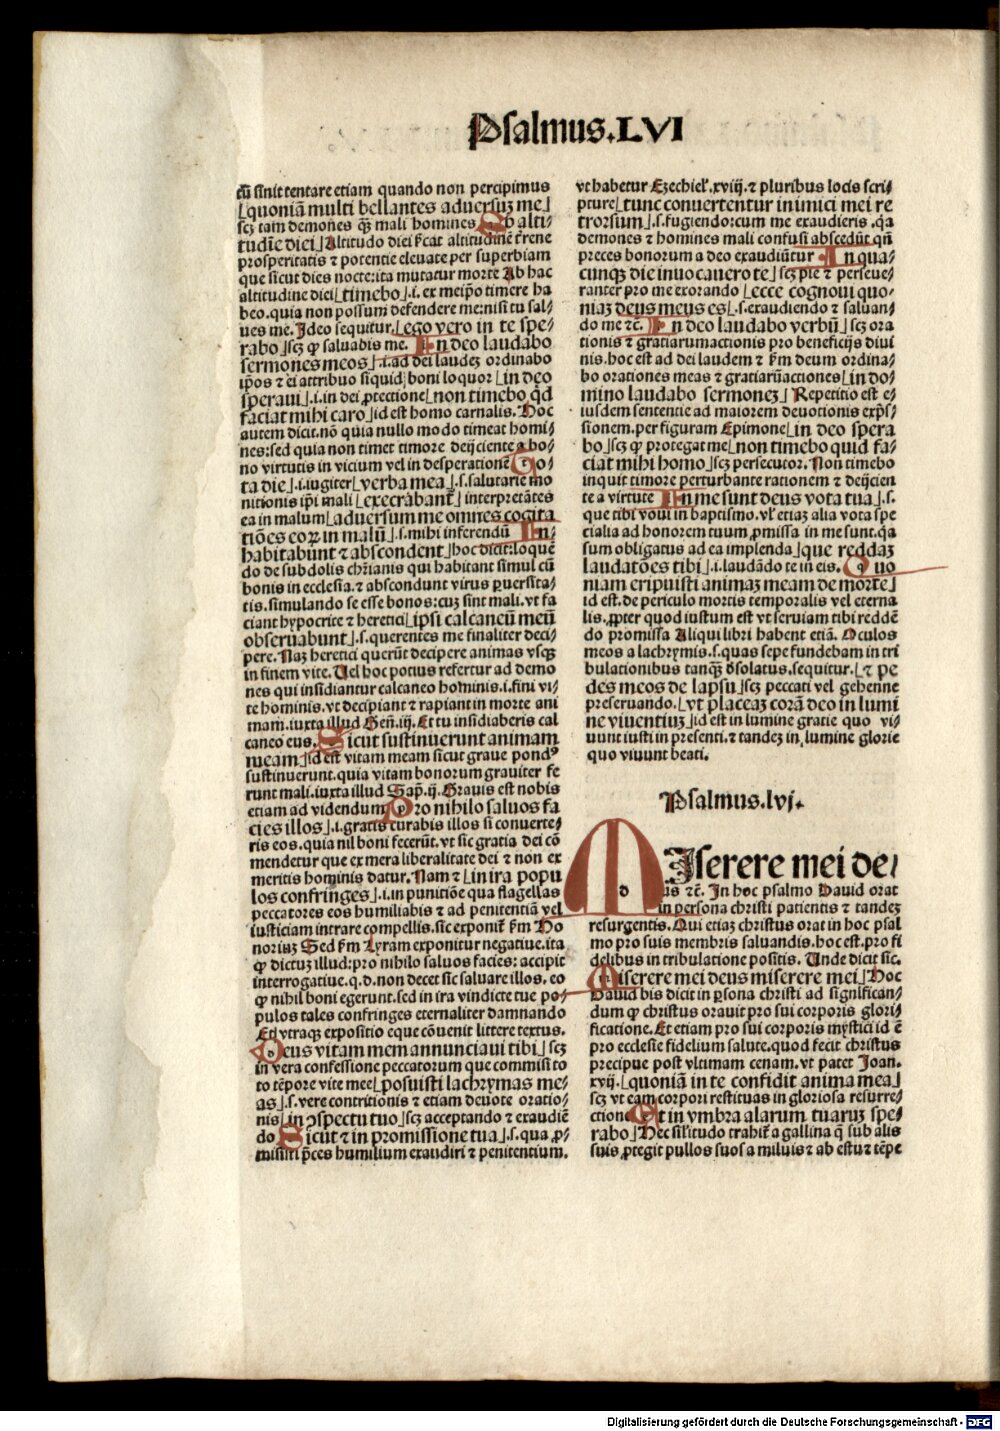 Psalmus.LVI
cū sinit tentare etiam quando non percipimus
⌊quoniā multi bellantes aduersuz me⌋
scꝫ tam demones qꝫ mali homines Ab alti⸗
tudīe diei⌋ Altitudo diei ſcat altitudinē t̄rene
prosperitatis ⁊ potentie eleuate per superbiam
que sicut dies nocte:ita mutatur morte Ab hac
altitudine diei⌊timebo⌋.i. ex meip̄o timere ha
beo.quia non possum defendere me:nisi tu sal⸗
ues me. Ideo sequitur.⌊ego vero in te spe⸗
rabo⌋scꝫ ꝙ saluabis me. In deo laudabo
sermones meos⌋.i.ad dei laudeꝫ ordinabo
ip̄os ⁊ ei attribuo siquid boni loquor⌊in deo
speraui⌋.i.in dei ꝓtectione⌊non timebo qd̄
faciat mihi caro⌋id est homo carnalis. Hoc
autem dicit.nō quia nullo modo timeat homi⸗
nes:sed quia non timet timore deijciente a bo⸗
no virtutis in vicium vel in desperationē To⸗
ta die⌋.i.iugiter⌊verba mea⌋.s.salutarie mo
nitionis ip̄i mali⌊execrabant᷑⌋interpretātes
ea in malum⌊aduersum me omnes cogita
tiōes eoꝝ in malū⌋.s.mihi inferendū In⸗
habitabunt ⁊ abscondent⌋hoc dicit:loquē
do de subdolis chr̄ianis qui habitant simul cū
bonis in ecclesia.⁊ abscondunt virus ꝑuersita⸗
tis.simulando se esse bonos:cuꝫ sint mali.vt fa
ciant hypocrite ⁊ heretici⌊ipsi calcaneū meū
obseruabunt⌋.s.querentes me finaliter deci⸗
pere. Naꝫ heretici querūt decipere animas vsqꝫ
in finem vite. Uel hoc potius refertur ad demo
nes qui insidiantur calcaneo hominis.i.fini vi⸗
te hominis.vt decipiant ⁊ rapiant in morte ani
mam.iuxta illud Gen̄.iij. Et tu insidiaberis cal
caneo eus. Sicut sustinuerunt animam
meam⌋id est vitam meam sicut graue pondꝰ
sustinuerunt.quia vitam bonorum grauiter fe
runt mali.iuxta illud Sap̄.ij. Grauis est nobis
etiam ad videndum Pro nihilo saluos fa
cies illos⌋.i.gratis curabis illos si conuerte⸗
ris eos.quia nil boni fecerūt.vt sic gratia dei cō
mendetur que ex mera liberalitate dei ⁊ non ex
meritis hominis datur. Nam ⁊⌊in ira popu
los confringes⌋.i.in punitiōe qua flagellas
peccatores eos humiliabis ⁊ ad penitentiā vel
iusticiam intrare compellis.sic exponit᷑ ẜm Ho
noriuꝫ Sed ẜm Lyram exponitur negatiue.ita
ꝙ dictuꝫ illud:pro nihilo saluos facies: accipit᷑
interrogatiue.q.d.non decet sic saluare illos.eo
ꝙ nihil boni egerunt.sed in ira vindicte tue po⸗
pulos tales confringes eternaliter damnando
Et vtraqꝫ expositio eque cōuenit littere textus.
Deus vitam mem annunciaui tibi⌋scꝫ
in vera confessione peccatorum que commisi to
to tēpore vite mee⌊posuisti lachrymas me⸗
as⌋.s.vere contritionis ⁊ etiam deuote oratio⸗
nis⌊in ꝯspectu tuo⌋scꝫ acceptando ⁊ exaudiē
do Sicut ⁊ in promissione tua⌋.s.qua ꝓ⸗
misisti p̄ces humilium exaudiri ⁊ penitentium.
vt habetur Ezechiel̕.xviij.⁊ pluribus locis scri⸗
pture⌊tunc conuertentur inimici mei re
trorsum⌋.s.fugiendo:cum me exaudieris.qa
demones ⁊ homines mali confusi abscedūt qn̄
preces bonorum a deo exaudiūtur In qua⸗
cunqꝫ die inuocauero te⌋scꝫ pie ⁊ perseue⸗
ranter pro me exorando⌊ecce cognoui quo⸗
niaꝫ deus meus es⌋.s.exaudiendo ⁊ saluan⸗
do me ⁊c̄. In deo laudabo verbū⌋scꝫ ora
tionis ⁊ gratiarumactionis pro beneficijs diui
nis.hoc est ad dei laudem ⁊ ẜm deum ordina⸗
bo orationes meas ⁊ gratiarūactiones⌊in do⸗
mino laudabo sermoneꝫ⌋ Repetitio est e⸗
iusdem sententie ad maiorem deuotionis exp̄s⸗
sionem.per figuram Epimone⌊in deo spera
bo⌋scꝫ ꝙ protegat me⌊non timebo quid fa⸗
ciat mihi homo⌋scꝫ persecutor. Non timebo
inquit timore perturbante rationem ⁊ deijcien
te a virtute In me sunt deus vota tua⌋.s.
que tibi voui in baptismo.vl̕ etiaꝫ alia vota spe
cialia ad honorem tuum ꝓmissa in me sunt.qa
sum obligatus ad ea implenda⌊que reddaꝫ
laudatōes tibi⌋.i.laudādo te in eis. Quo
niam eripuisti animaꝫ meam de morte⌋
id est.de periculo mortis temporalis vel eterna
lis.ꝓpter quod iustum est vt seruiam tibi reddē
do promissa Aliqui libri habent etiā. Oculos
meos a lachrymis.s.quas sepe fundebam in tri
bulationibus tanqꝫ ꝺsolatus.sequitur.⌊⁊ pe
des meos de lapsu⌋scꝫ peccati vel gehenne
preseruando.⌊vt placeaꝫ corā deo in lumi
ne viuentiuꝫ⌋id est in lumine gratie quo vi⸗
uunt iusti in presenti.⁊ tandeꝫ in lumine glorie
quo viuunt beati.
Psalmus.lvj.
MIserere mei de⸗
us ⁊c̄. In hoc psalmo Dauid orat
in persona christi patientis ⁊ tandeꝫ
resurgentis. Qui etiaꝫ christus orat in hoc psal
mo pro suis membris saluandis.hoc est.pro fi
delibus in tribulatione positis. Unde dicit sic.
Miserere mei deus miserere mei⌋Hoc
Dauid bis dicit in ꝑsona christi ad significan⸗
dum ꝙ christus orauit pro sui corporis glori⸗
ficatione. Et etiam pro sui corporis mystici id ē
pro ecclesie fidelium salute.quod fecit christus
precipue post vltimam cenam.vt patet Joan.
xvij.⌊quoniā in te confidit anima mea⌋
scꝫ vt eam corpori restituas in gloriosa resurre⸗
ctione Et in vmbra alarum tuaruꝫ spe⸗
rabo⌋Hec sil̕itudo trahit᷑ a gallina q̄ sub alis
suis ꝓtegit pullos suos a miluis ⁊ ab estu ⁊ tēpe
Digitalisierung gefördert durch die Deutsche Forschungsgemeinschaft - DFG